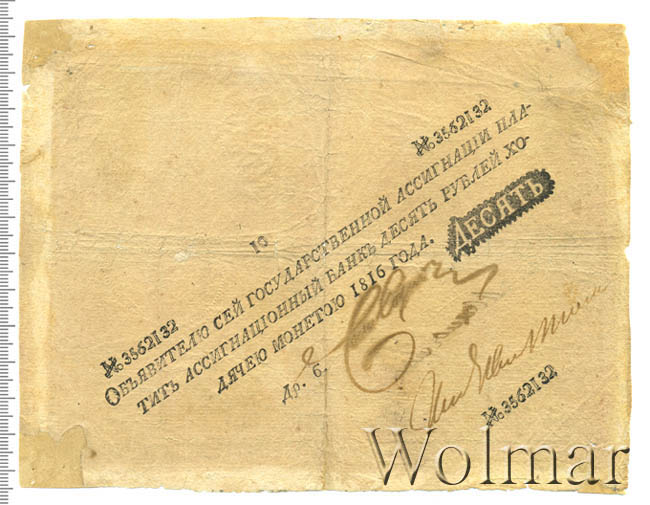 № 3562132
10
№ 3562132
Объявителю сей государственной ассигнаціи пла-
титъ ассигнаціонный банкъ десять рублей хо-
дячею монетою 1816 года.
Десять
Др. б.
№ 3562132
Wolmar